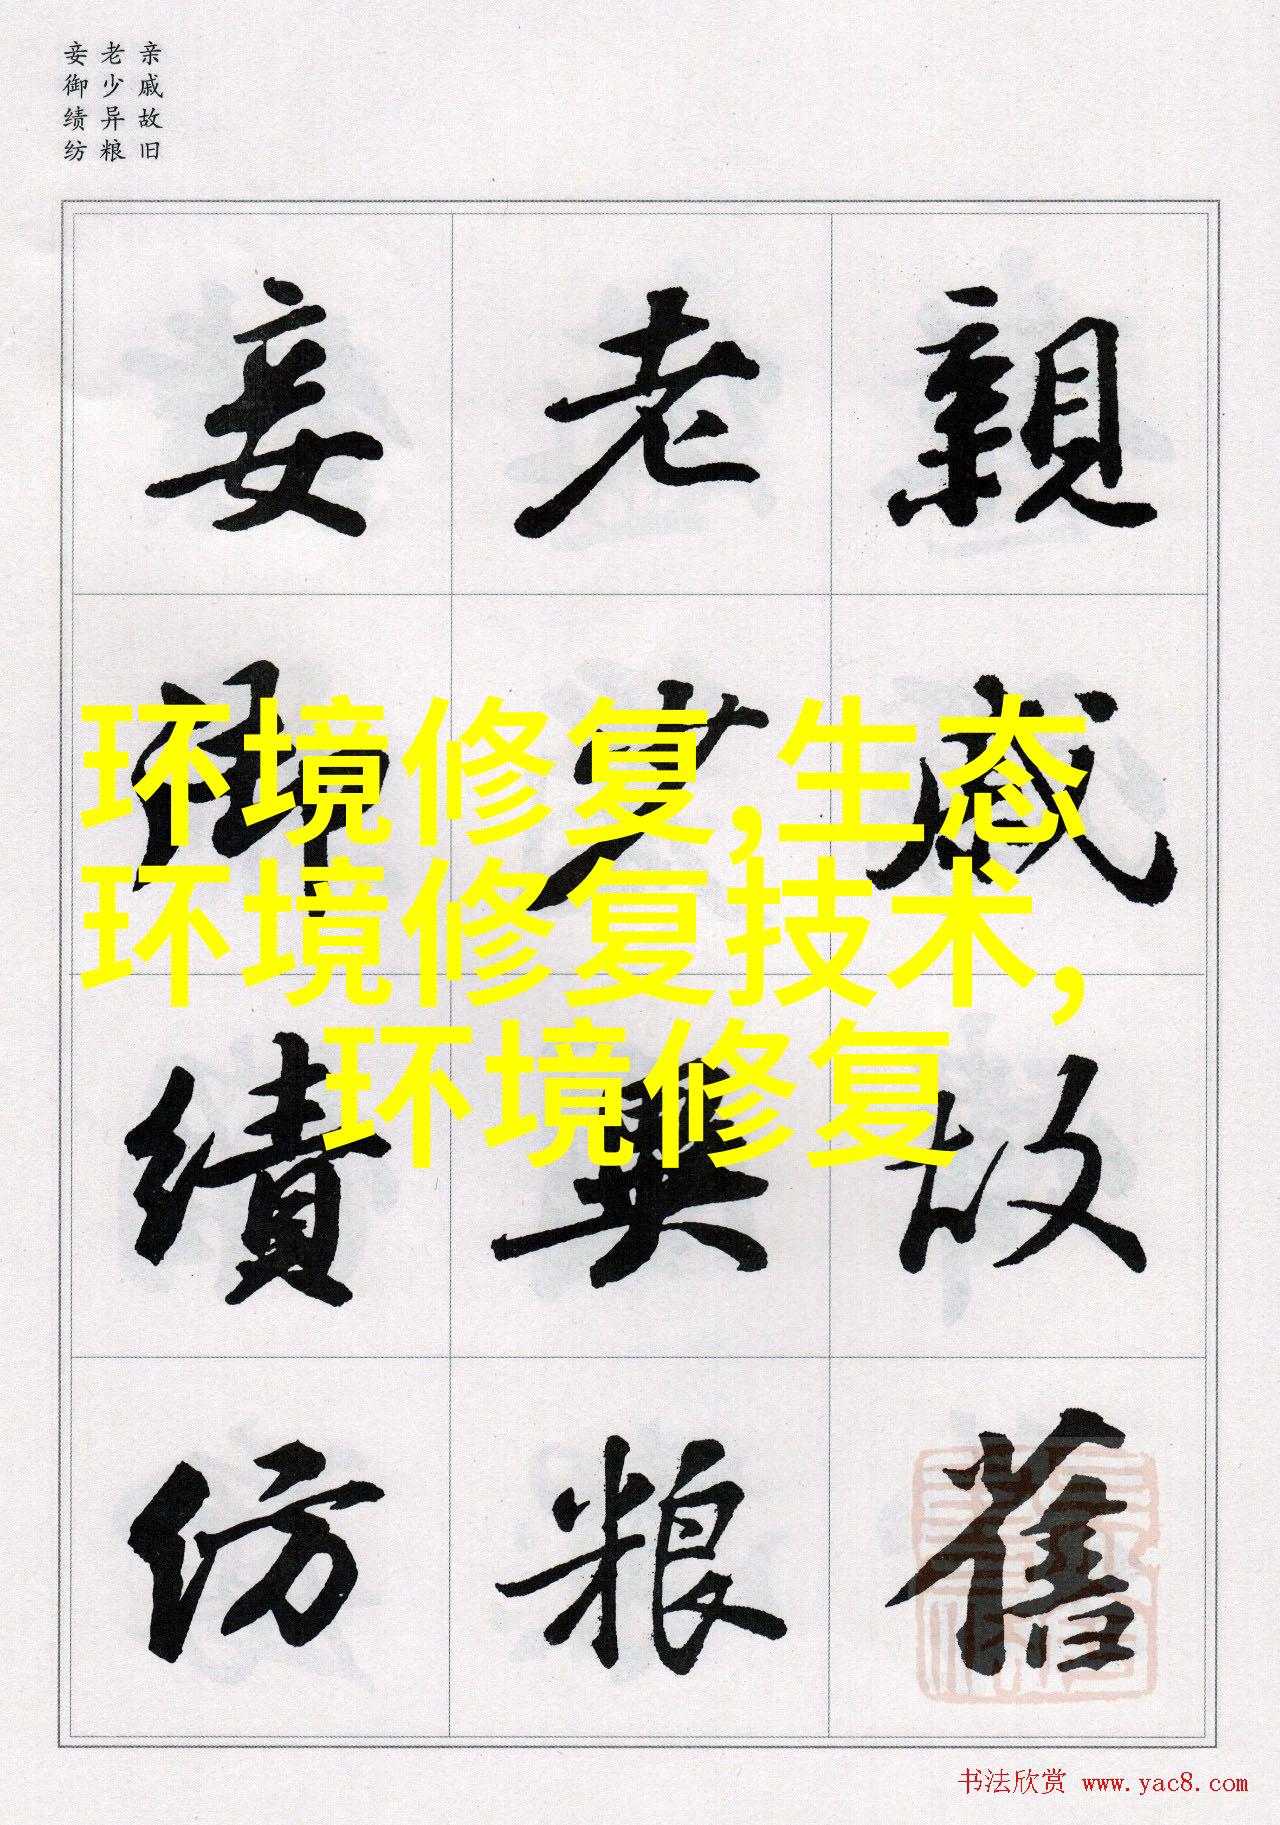 亲戚故旧
老少异粮
妾御绩纺
親戚故舊
老少異粮
妾御績紡
环境修复,生态
环境修复技术,
环境修复
书法欣赏 www.yac8.com